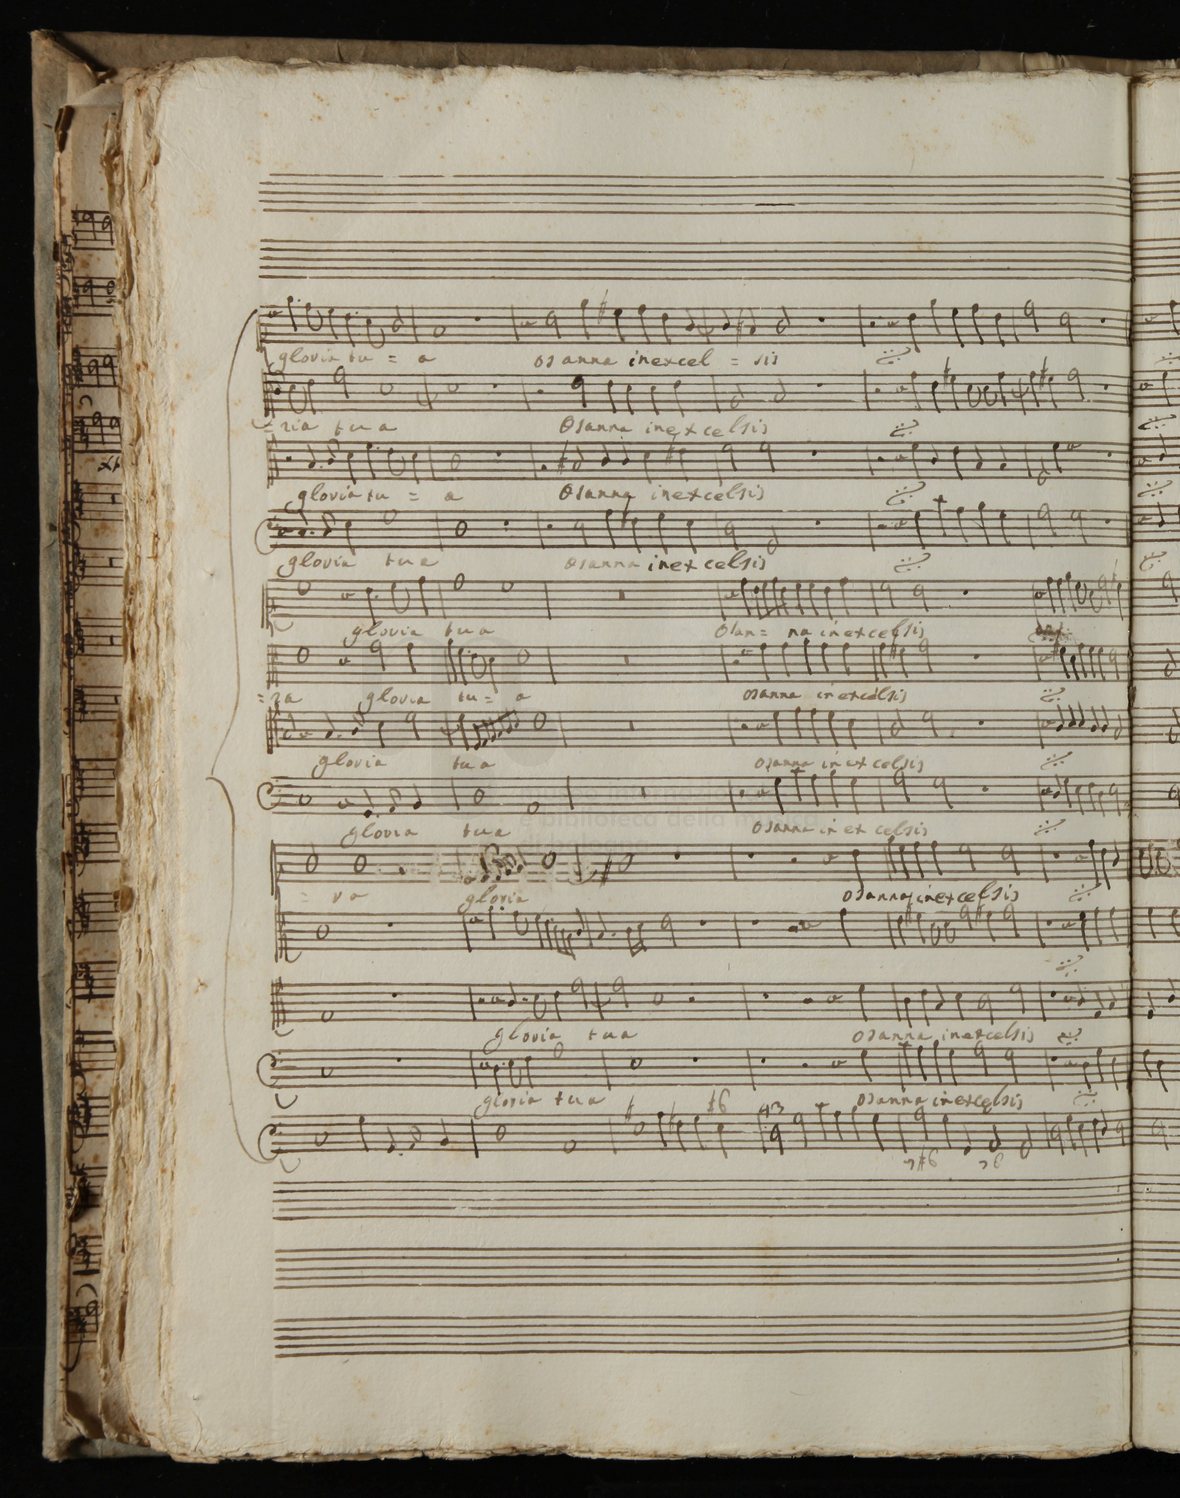 gloria tu = a osanna in excel = sis
= ria tua Osanna in excelsis
gloria tu = a Osanna in excelsis
gloria tua Osanna in excelsis
gloria tua Osan = na in excelsis
= ria gloria tu = a osanna in excelsis
gloria tua osanna in excelsis
gloria tua osanna in excelsis
= ra gloria osanna in excelsis
gloria tua osanna in excelsis
gloria tua osanna in excelsis
#6 43
7#6 76